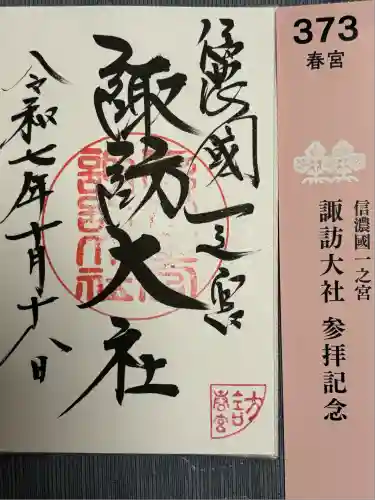 信濃國一之宮
諏訪大社
令和七年十月十八日
諏訪大社
373
春宮
信濃國一之宮
諏訪大社 参拝記念
諏訪
春宮